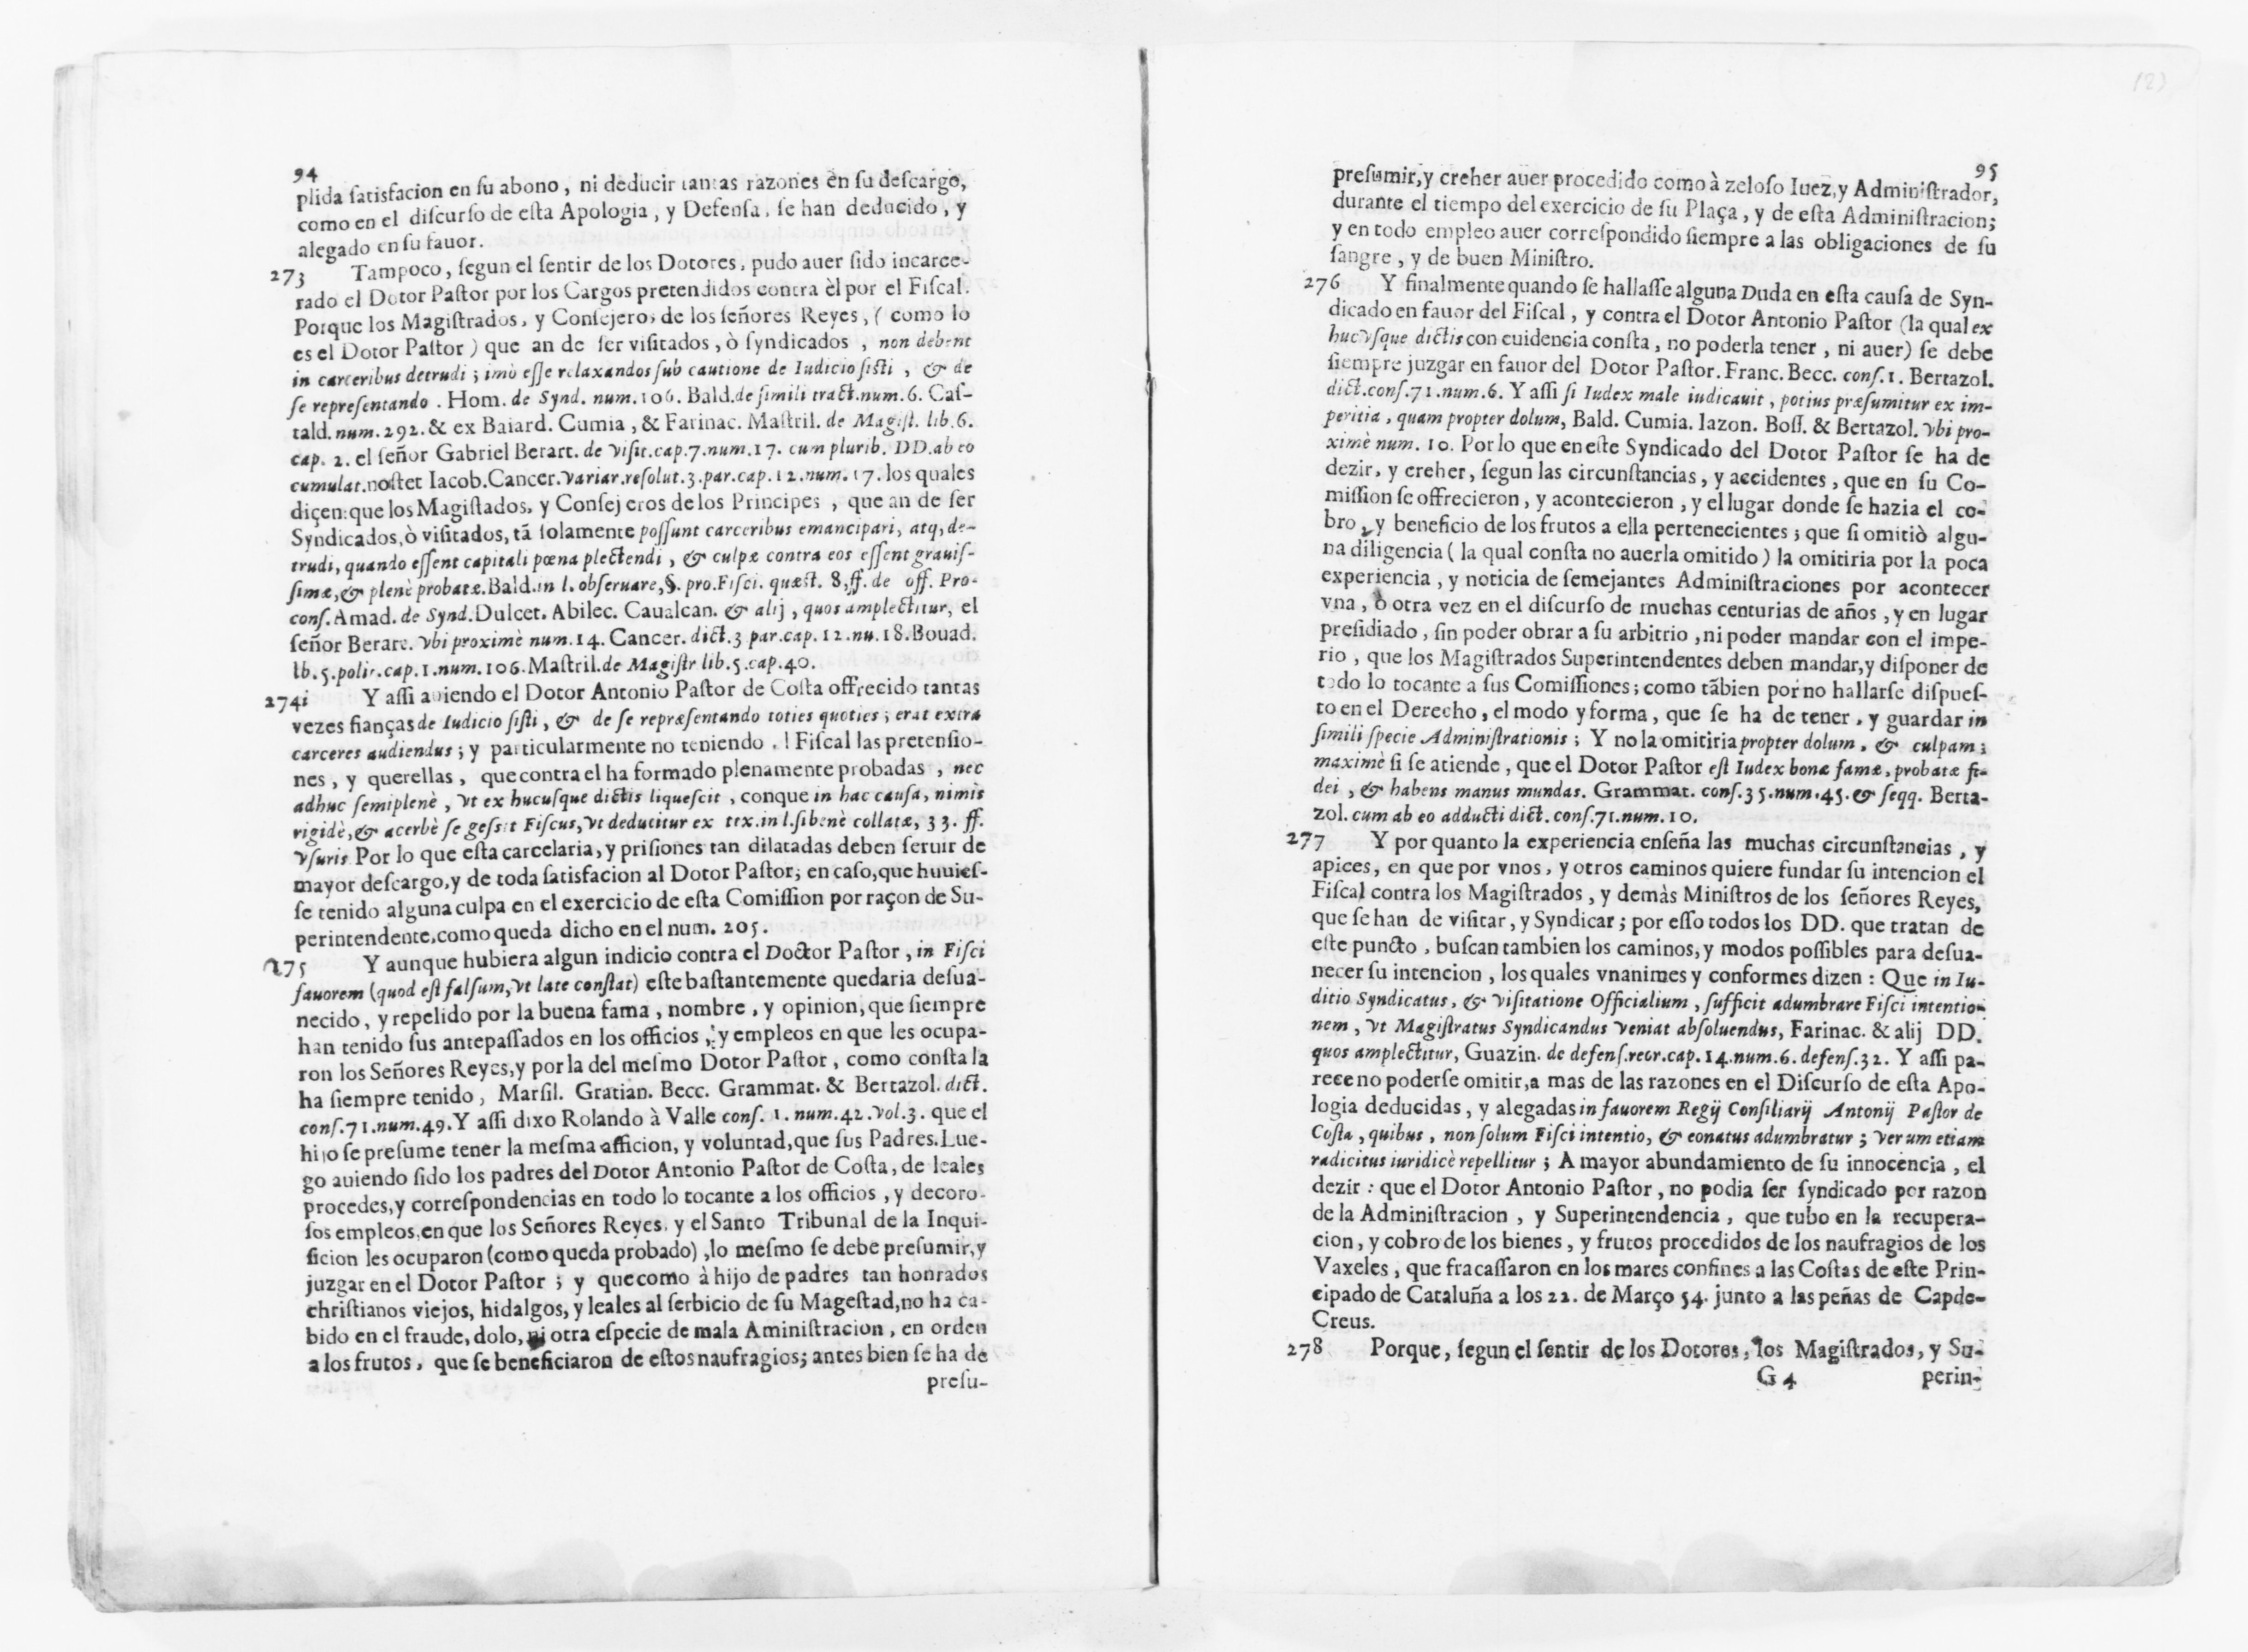 94
plida ſatisfacion en ſu abono, ni deducir tantas razones en ſu deſcargo,
como en el diſcurſo de eſta Apologia, y Defenſa, ſe han deducido, y
alegado en ſu fauor.
273 Tampoco, ſegun el ſentir de los Dotores, pudo auer ſido incarce-
rado el Dotor Paſtor por los Cargos pretendidos contra èl por el Fiſcal.
Porque los Magiſtrados, y Conſejeros de los ſeñores Reyes, (como lo
es el Dotor Paſtor) que an de ſer viſitados, ò ſyndicados, non debent
in carceribus detrudi; imò eſſe relaxandos ſub cautione de Iudicio ſiſti, & de
ſe repreſentando. Hom. de Synd. num. 106. Bald. de ſimili tract. num. 6. Caſ-
tald. num. 292. & ex Baiard. Cumia, & Farinac. Maſtril. de Magiſt. lib. 6.
cap. 2. el ſeñor Gabriel Berart. de viſit. cap. 7. num. 17. cum plurib. DD. ab eo
cumulat. noſtet Iacob. Cancer. variar. reſolut. 3. par. cap. 12. num. 17. los quales
diçen: que los Magiſtados, y Conſejeros de los Principes, que an de ſer
Syndicados, ò viſitados, tã ſolamente poſſunt carceribus emancipari, atq, de-
trudi, quando eſſent capitali pœna plectendi, & culpæ contra eos eſſent grauiſ-
ſimæ, & plenè probatæ. Bald. in l. obſeruare, §. pro. Fiſci. quæſt. 8. ff. de off. Pro-
conſ. Amad. de Synd. Dulcet. Abilec. Caualcan. & alij, quos amplectitur, el
ſeñor Berart. vbi proximè num. 14. Cancer. dict. 3 par. cap. 12. nu. 18. Bouad.
lb. 5. polit. cap. 1. num. 106. Maſtril. de Magiſtr lib. 5. cap. 40.
274i Y aſſi auiendo el Dotor Antonio Paſtor de Coſta offrecido tantas
vezes fianças de Iudicio ſiſti, & de ſe repræſentando toties quoties; erat extra
carceres audiendus; y particularmente no teniendo el Fiſcal las pretenſio-
nes, y querellas, que contra el ha formado plenamente probadas, nec
adhuc ſemiplenè, vt ex hucuſque dictis liqueſcit, conque in hac cauſa, nimis
rigidè, & acerbè ſe geſsit Fiſcus, vt deducitur ex tex. in l. ſi benè collatæ, 33. ff.
vſuris Por lo que eſta carcelaria, y priſiones tan dilatadas deben ſeruir de
mayor deſcargo, y de toda ſatisfacion al Dotor Paſtor; en caſo, que huuieſ-
ſe tenido alguna culpa en el exercicio de eſta Comiſſion por raçon de Su-
perintendente, como queda dicho en el num. 205.
275 Y aunque hubiera algun indicio contra el Doctor Paſtor, in Fiſci
fauorem (quod eſt falſum, vt late conſtat) eſte baſtantemente quedaria deſua-
necido, y repelido por la buena fama, nombre, y opinion, que ſiempre
han tenido ſus antepaſſados en los officios, y empleos en que les ocupa-
ron los Señores Reyes, y por la del meſmo Dotor Paſtor, como conſta la
ha ſiempre tenido, Marſil. Gratian. Becc. Grammat. & Bertazol. dict.
conſ. 71. num. 49. Y aſſi dixo Rolando à Valle conſ. 1. num. 42. vol. 3. que el
hijo ſe preſume tener la meſma afficion, y voluntad, que ſus Padres. Lue-
go auiendo ſido los padres del Dotor Antonio Paſtor de Coſta, de leales
procedes, y correſpondencias en todo lo tocante a los officios, y decoro-
ſos empleos, en que los Señores Reyes, y el Santo Tribunal de la Inqui-
ſicion les ocuparon (como queda probado), lo meſmo ſe debe preſumir, y
juzgar en el Dotor Paſtor; y que como à hijo de padres tan honrados
chriſtianos viejos, hidalgos, y leales al ſerbicio de ſu Mageſtad, no ha ca-
bido en el fraude, dolo, ni otra eſpecie de mala Aminiſtracion, en orden
a los frutos, que ſe beneficiaron de eſtos naufragios; antes bien ſe ha de
preſu-
95
preſumir, y creher auer procedido como à zeloſo Iuez, y Adminiſtrador,
durante el tiempo del exercicio de ſu Plaça, y de eſta Adminiſtracion;
y en todo empleo auer correſpondido ſiempre a las obligaciones de ſu
ſangre, y de buen Miniſtro.
276 Y finalmente quando ſe hallaſſe alguna Duda en eſta cauſa de Syn-
dicado en fauor del Fiſcal, y contra el Dotor Antonio Paſtor (la qual ex
hucvſque dictis con euidencia conſta, no poderla tener, ni auer) ſe debe
ſiempre juzgar en fauor del Dotor Paſtor. Franc. Becc. conſ. 1. Bertazol.
dict. conſ. 71. num. 6. Y aſſi ſi Iudex male iudicauit, potius præſumitur ex im-
peritia, quam propter dolum, Bald. Cumia. Iazon. Boſſ. & Bertazol. vbi pro-
ximè num. 10. Por lo que en eſte Syndicado del Dotor Paſtor ſe ha de
dezir, y creher, ſegun las circunſtancias, y accidentes, que en ſu Co-
miſſion ſe offrecieron, y acontecieron, y el lugar donde ſe hazia el co-
bro, y beneficio de los frutos a ella pertenecientes; que ſi omitiò algu-
na diligencia (la qual conſta no auerla omitido) la omitiria por la poca
experiencia, y noticia de ſemejantes Adminiſtraciones por acontecer
vna, ò otra vez en el diſcurſo de muchas centurias de años, y en lugar
preſidiado, ſin poder obrar a ſu arbitrio, ni poder mandar con el impe-
rio, que los Magiſtrados Superintendentes deben mandar, y diſponer de
todo lo tocante a ſus Comiſſiones; como tãbien por no hallarſe diſpueſ-
to en el Derecho, el modo y forma, que ſe ha de tener, y guardar in
ſimili ſpecie Adminiſtrationis; Y no la omitiria propter dolum, & culpam;
maximè ſi ſe atiende, que el Dotor Paſtor eſt Iudex bonæ famæ, probatæ fi-
dei, & habens manus mundas. Grammat. conſ. 35. num. 45. & ſeqq. Berta-
zol. cum ab eo adducti dict. conſ. 71. num. 10.
277 Y por quanto la experiencia enſeña las muchas circunſtancias, y
apices, en que por vnos, y otros caminos quiere fundar ſu intencion el
Fiſcal contra los Magiſtrados, y demàs Miniſtros de los ſeñores Reyes,
que ſe han de viſitar, y Syndicar; por eſſo todos los DD. que tratan de
eſte puncto, buſcan tambien los caminos, y modos poſſibles para deſua-
necer ſu intencion, los quales vnanimes y conformes dizen: Que in Iu-
ditio Syndicatus, & viſitatione Officialium, ſufficit adumbrare Fiſci intentio-
nem, vt Magiſtratus Syndicandus veniat abſoluendus, Farinac. & alij DD.
quos amplectitur, Guazin. de defenſ. reor. cap. 14. num. 6. defenſ. 32. Y aſſi pa-
rece no poderſe omitir, a mas de las razones en el Diſcurſo de eſta Apo-
logia deducidas, y alegadas in fauorem Regij Conſiliarij Antonij Paſtor de
Coſta, quibus, non ſolum Fiſci intentio, & conatus adumbratur; verum etiam
radicitus iuridicè repellitur; A mayor abundamiento de ſu innocencia, el
dezir: que el Dotor Antonio Paſtor, no podia ſer ſyndicado por razon
de la Adminiſtracion, y Superintendencia, que tubo en la recupera-
cion, y cobro de los bienes, y frutos procedidos de los naufragios de los
Vaxeles, que fracaſſaron en los mares confines a las Coſtas de eſte Prin-
cipado de Cataluña a los 22. de Março 54. junto a las peñas de Capde-
Creus.
278 Porque, ſegun el ſentir de los Dotores, los Magiſtrados, y Su-
G 4 perin-